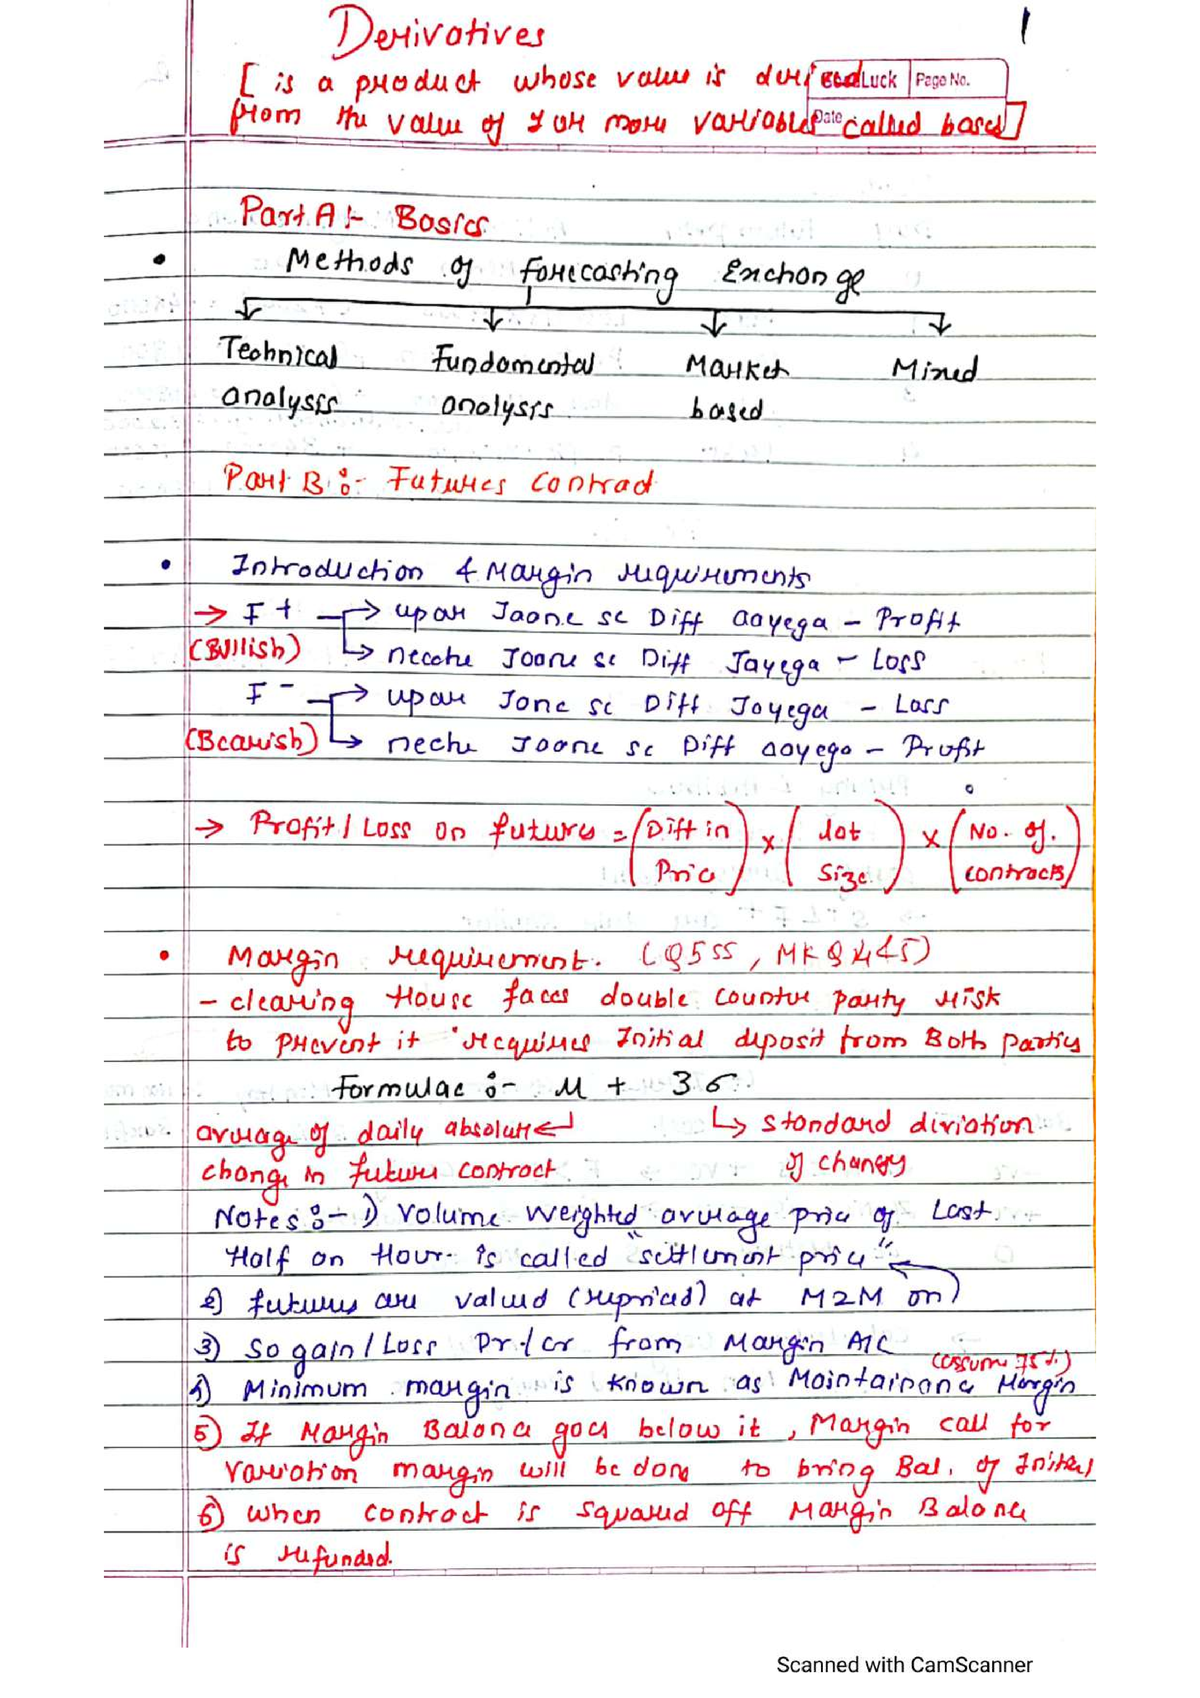 Derivatives
1
[ is a product whose value is derived
Good Luck Page No.
from the value of 1 or more variables called bases]
Date
Part A :- Basics
• Methods of forecasting Exchange
Technical Fundamental Market Mixed
analysis analysis based
Part B :- Futures Contract
• Introduction & Margin requirements
→ F+ → upar Jaane se Diff aayega - Profit
(Bullish) ↳ neeche Jaane se Diff Jayega - Loss
F- → upar Jane se Diff Jayega - Loss
(Bearish) ↳ neche Jaane se Diff aayega - Profit
→ Profit / Loss on future = (Diff in Price) × (lot Size) × (No. of. contracts)
• Margin requirement. (Q555, MKQ445)
- clearing House faces double counter party risk
to prevent it requires Initial deposit from Both parties
Formulae :- μ + 3σ
average of daily absolute ↳ standard diviation
change in future contract of changes
Notes :- 1) Volume weighted average price of Last
Half an Hour is called "settlement price"
2) futures are valued (repriced) at M2M on
3) So gain / Loss Dr / cr from Margin A/C
(assume 75%)
4) Minimum margin is known as Maintainance Margin
5) If Margin Balance goes below it, Margin call for
variation margin will be done to bring Bal. of Initial
6) When contract is squared off Margin Balance
is refunded.
Scanned with CamScanner